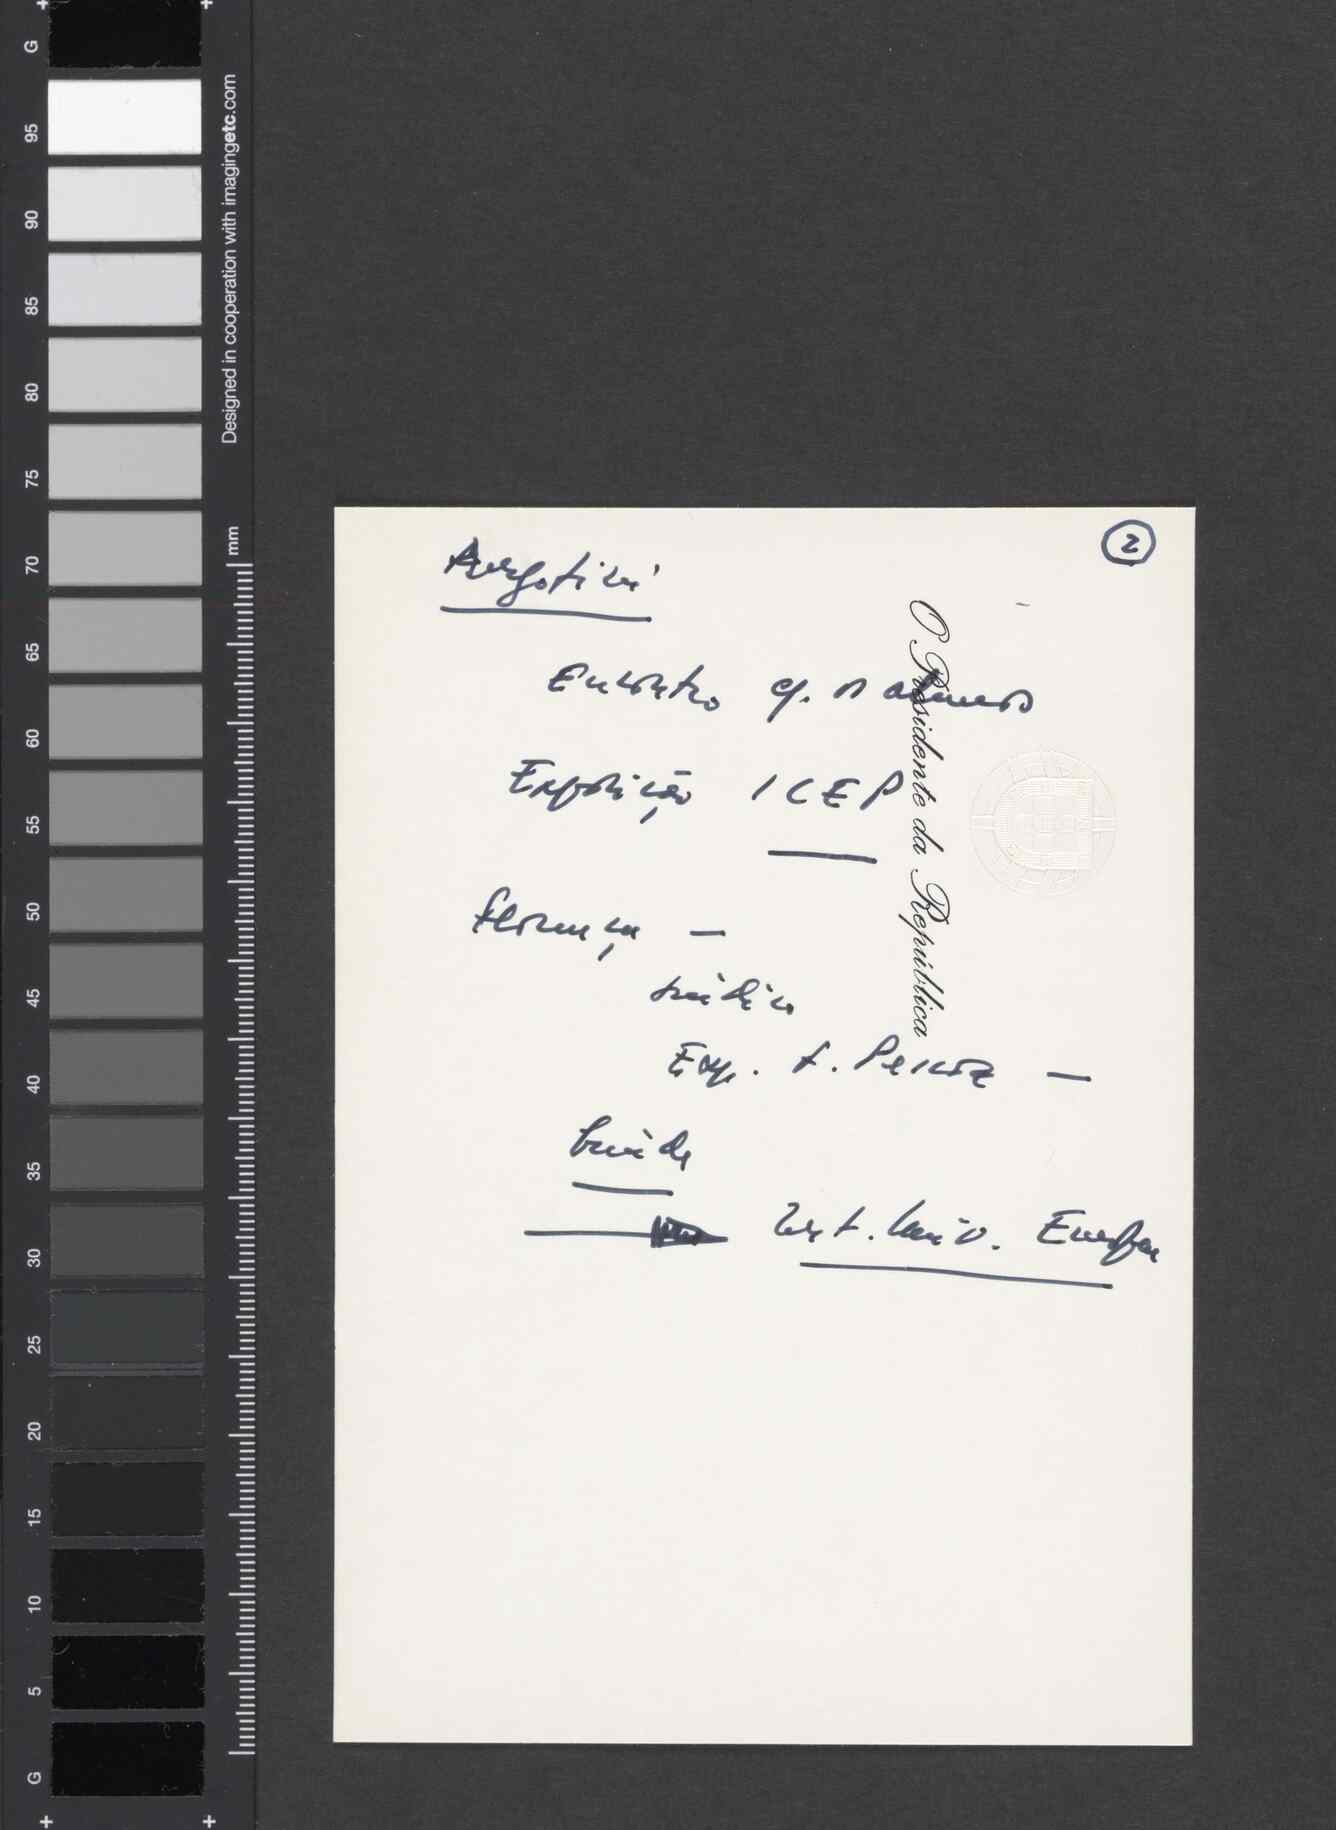 2
Encontro c/.
Exposição ICEP
Florença —
Exp. —
Inst. Univ. Europeu
O Presidente da República
Designed in cooperation with imagingetc.com
mm
G
95
90
85
80
75
70
65
60
55
50
45
40
35
30
25
20
15
10
5
G